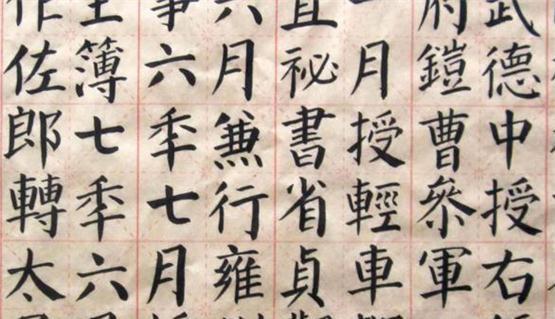 武德中授右
府鎧曹叅軍
一月授輕車
直祕書省貞
六月兼行雍
事六秊七月
主簿七秊六
作佐郎轉太